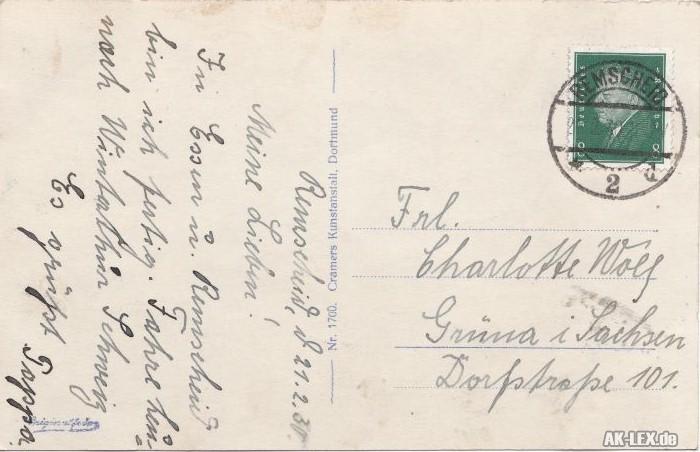 Remscheid, d 21.2.30.
Meine Lieben!
In Essen u. Remscheid
bin ich fertig. Fahre heu-
nach Winterthur Schweiz
Es grüßt Pappa.
Nr. 1700. Cramers Kunstanstalt, Dortmund
REMSCHEID
2
8 8
Frl.
Charlotte Wolf
Grüna i Sachsen
Dorfstraße 101.
AK-LEX.de